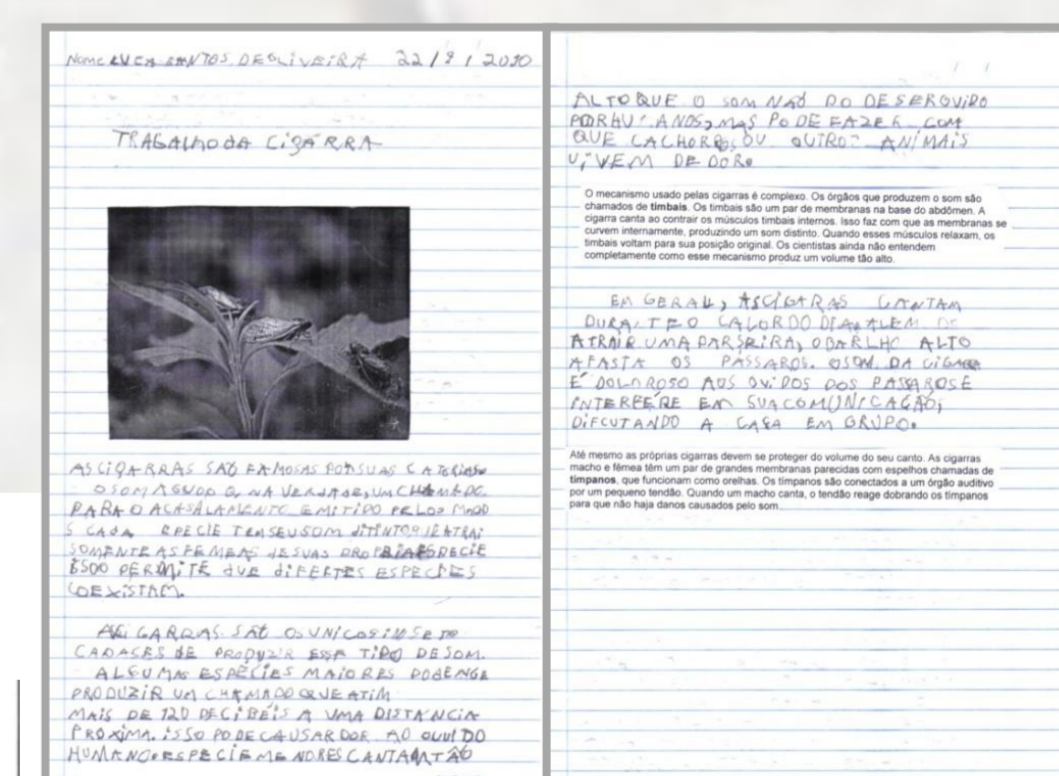 Nome LUCA SANTOS DE OLIVEIRA 22/9/2010
TRABALHO DA CIGARRA
AS CIGARRAS SÃO FAMOSAS POR SUAS
O SOM AGUDO É, NA VERDADE, UM CHAMADO
PARA O ACASALAMENTO EMITIDO PELOS MACO
S CADA SPECIE TEM SEU SOM DITINTO ATRAI
SOMENTE AS FEMEAS DE SUAS PROPRIA ESPECIE
ISSO PERMITE QUE DIFERTES ESPECIES
COEXISTAM.
AS CIGARRAS SÃO OS UNICOS INSETO
CADACES DE PRODUZIR ESSE TIPO DE SOM.
ALGUMAS ESPÉCIES MAIORES PODEM
PRODUZIR UM CHAMADO QUE ATIM
MAIS DE 120 DECIBÉIS A UMA DISTANCIA
PROXIMA. ISSO PODE CAUSAR DOR AO OUVIDO
HUMANO. ESPECIE MENORES CANTAM TÃO
ALTO QUE O SOM NÃO DO DE SER OUVIDO
POR HU ANOS, MAS PODE FAZER COM
QUE CACHORROS, OU OUTROS ANIMAIS
UIVEM DE DOR.
O mecanismo usado pelas cigarras é complexo. Os órgãos que produzem o som são
chamados de timbais. Os timbais são um par de membranas na base do abdômen. A
cigarra canta ao contrair os músculos timbais internos. Isso faz com que as membranas se
curvem internamente, produzindo um som distinto. Quando esses músculos relaxam, os
timbais voltam para sua posição original. Os cientistas ainda não entendem
completamente como esse mecanismo produz um volume tão alto.
EM GERAL, AS CIGARAS CANTAM
DURANTE O CALOR DO DIA. ALEM DE
ATRAIR UMA PARSEIRA, O BARLHO ALTO
AFASTA OS PASSAROS. O SOM DA CIGARA
É DOLOROSO AOS OVIDOS DOS PASSAROS E
INTERFERE EM SUA COMUNICAÇÃO,
DIFCUTANDO A CAÇA EM GRUPO.
Até mesmo as próprias cigarras devem se proteger do volume do seu canto. As cigarras
macho e fêmea têm um par de grandes membranas parecidas com espelhos chamadas de
tímpanos, que funcionam como orelhas. Os tímpanos são conectados a um órgão auditivo
por um pequeno tendão. Quando um macho canta, o tendão reage dobrando os tímpanos
para que não haja danos causados pelo som.